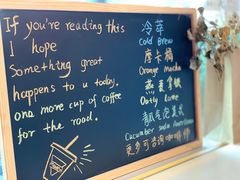 If you're reading this
I hope
something great
happens to u today.
one more cup of coffee
for the road.
冷萃
Cold Brew
摩卡橘
Orange Mocha
燕麦拿铁
Oatly Love
Cucumber soda Americano
更多可咨询咖啡师